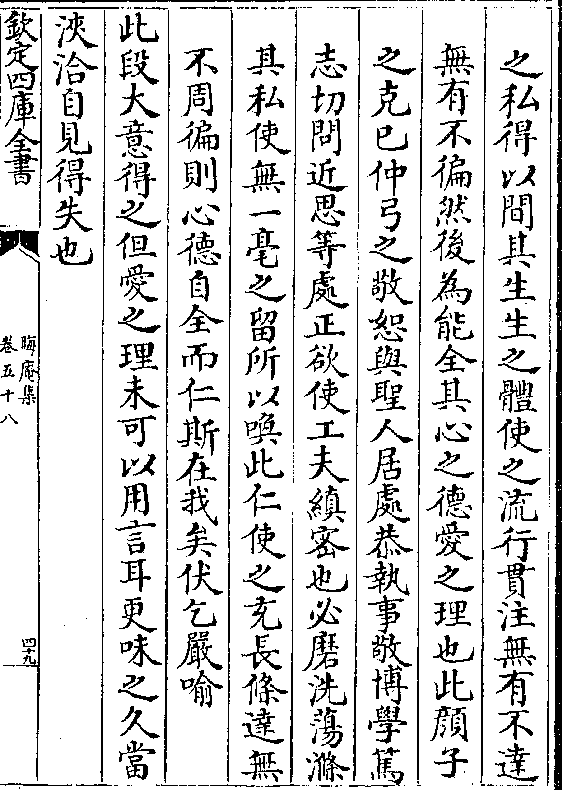 之私得以間其生生之體使之流行貫注無有不達
無有不徧然後為能全其心之德愛之理也此顔子
之克已仲弓之敬恕與聖人居處恭執事敬博學篤
志切問近思等處正欲使工夫縝密也必磨洗蕩滌
其私使無一毫之留所以喚此仁使之充長條達無
不周徧則心德自全而仁斯在我矣伏乞嚴喻
此段大意得之但愛之理未可以用言耳更味之久當
浹洽自見得失也
欽定四庫全書
晦庵集
卷五十八
四十九